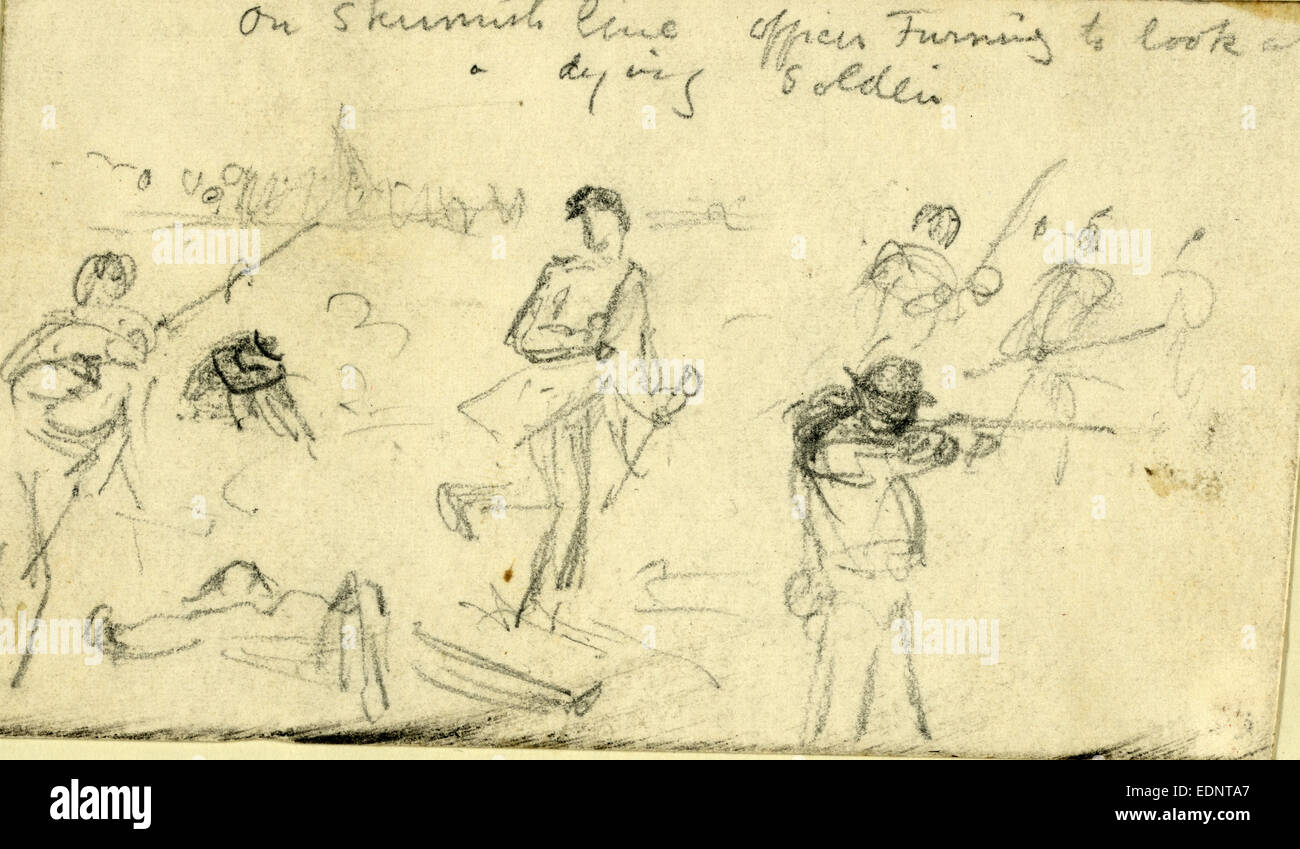 On Skirmish line officer Turning to look a
a dying Soldier
alamy
alamy
alamy
alamy
alamy
alamy
Image ID: EDNTA7
www.alamy.com